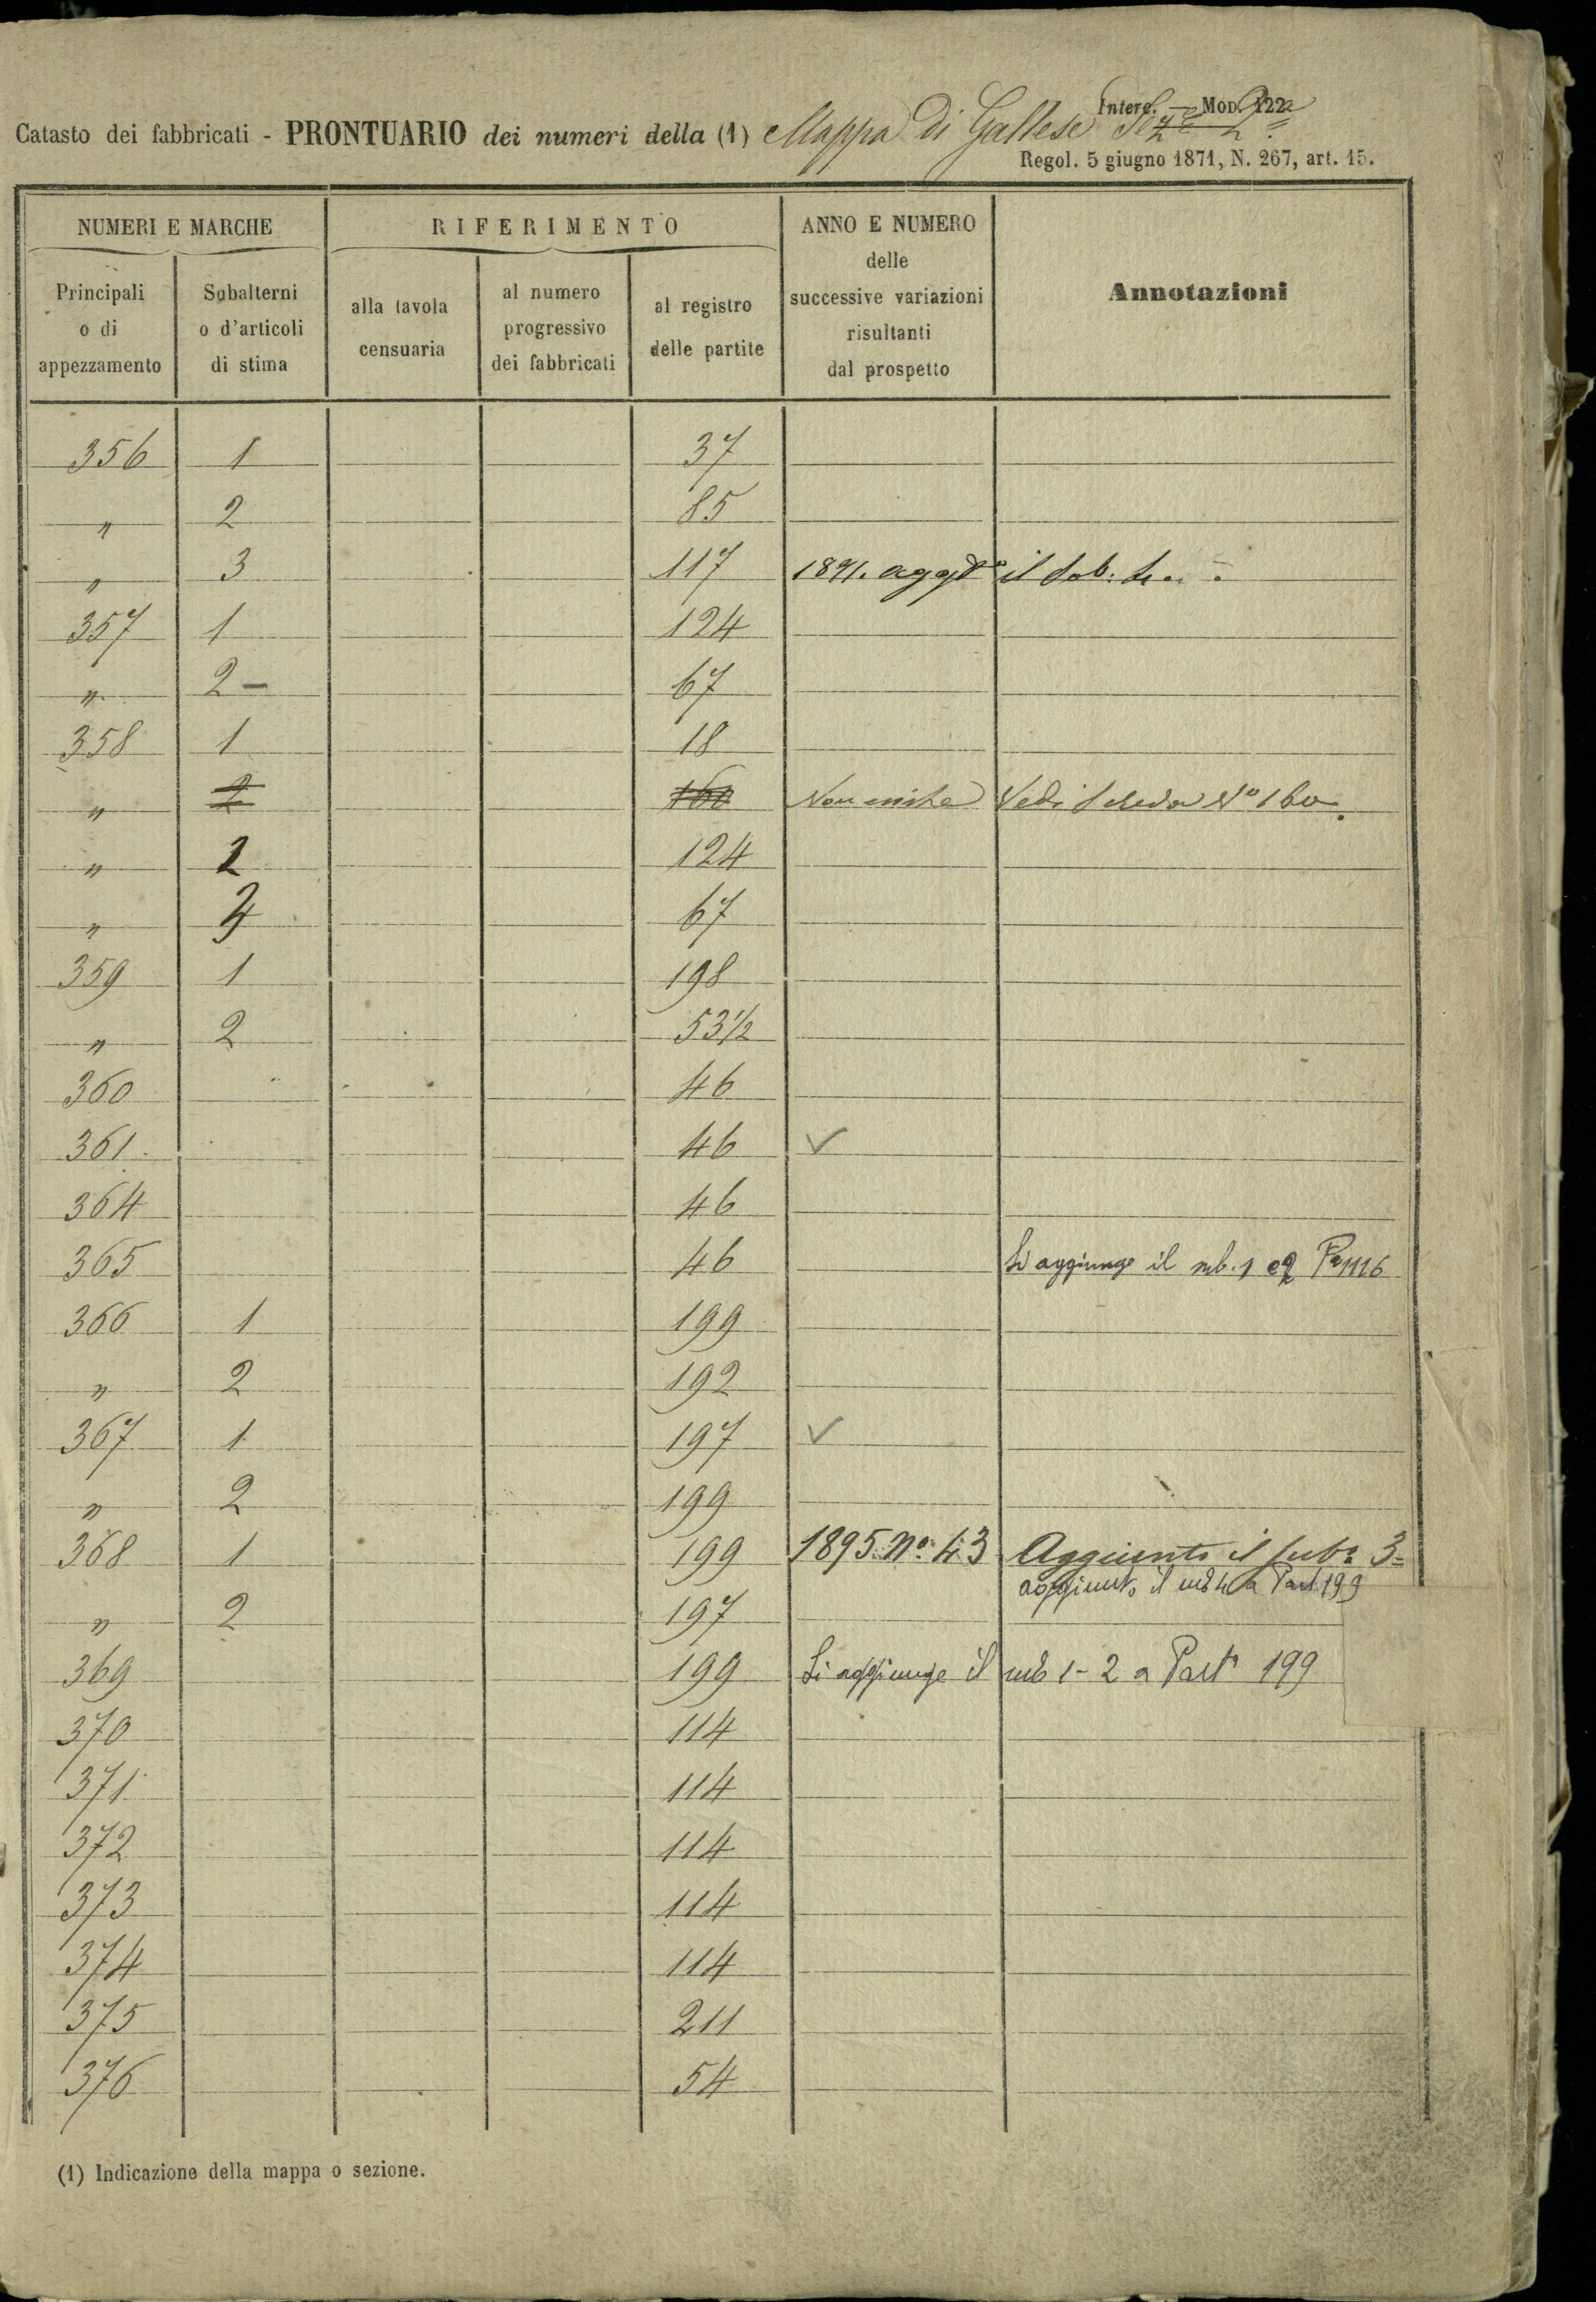 Interc. — Mod. 122
Catasto dei fabbricati - PRONTUARIO dei numeri della (1) Mappa di Gallese Sez.e 2a
Regol. 5 giugno 1871, N. 267, art. 15.
NUMERI E MARCHE
RIFERIMENTO
ANNO E NUMERO
delle
successive variazioni
risultanti
dal prospetto
Annotazioni
Principali
o di
appezzamento
Subalterni
o d'articoli
di stima
alla tavola
censuaria
al numero
progressivo
dei fabbricati
al registro
delle partite
356 1 37
" 2 85
" 3 117 1891. aggto il sub:
357 1 124
" 2 - 67
358 1 18
" 2 160 Non esiste Vedi scheda No 160.
" 2 124
" 67
359 1 198
" 2 53 1/2
360 46
361 46 ✓
364 46
365 46 Si aggiunge il sub. 1 e 2
366 1 199
" 2 192
367 1 197 ✓
" 2 199
368 1 199 1895 No. 43 Aggiunto il sub. 3
aggiunto il sub 4 a Part 199
" 2 197
369 199 Si aggiunge il sub 1-2 a Parta 199
370 114
371 114
372 114
373 114
374 114
375 211
376 54
(1) Indicazione della mappa o sezione.